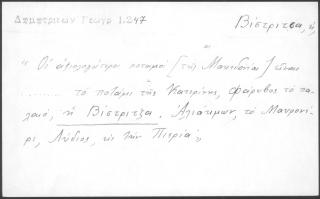 Δημητριεών Γεωγρ 1.247
Βίστριτσα, ἡ,
"Οἱ ἀξιολογώτεροι ποταμοὶ [τῆς Μακεδονίας] εἶναι
......... τὸ ποτάμι τῆς Κατερίνης, Φάρυβος τὸ πα-
λαιό, ἡ Βίστριτζα, Ἁλιάκμων, τὸ Μαυρονέ-
ρι, Λύδιος, εἰς τὴν Πιερία"